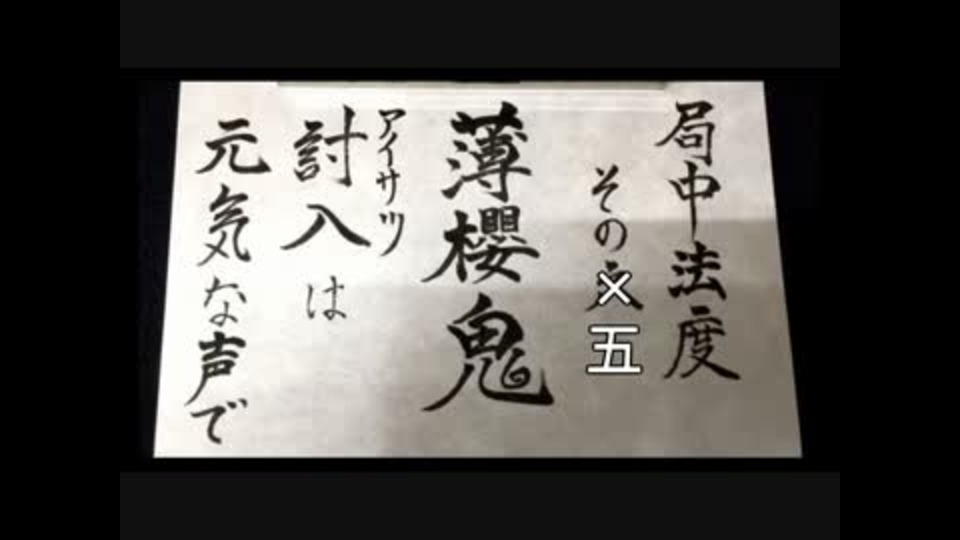 局中法度
その
五
薄櫻鬼
アイサツ
討入は
元気な声で